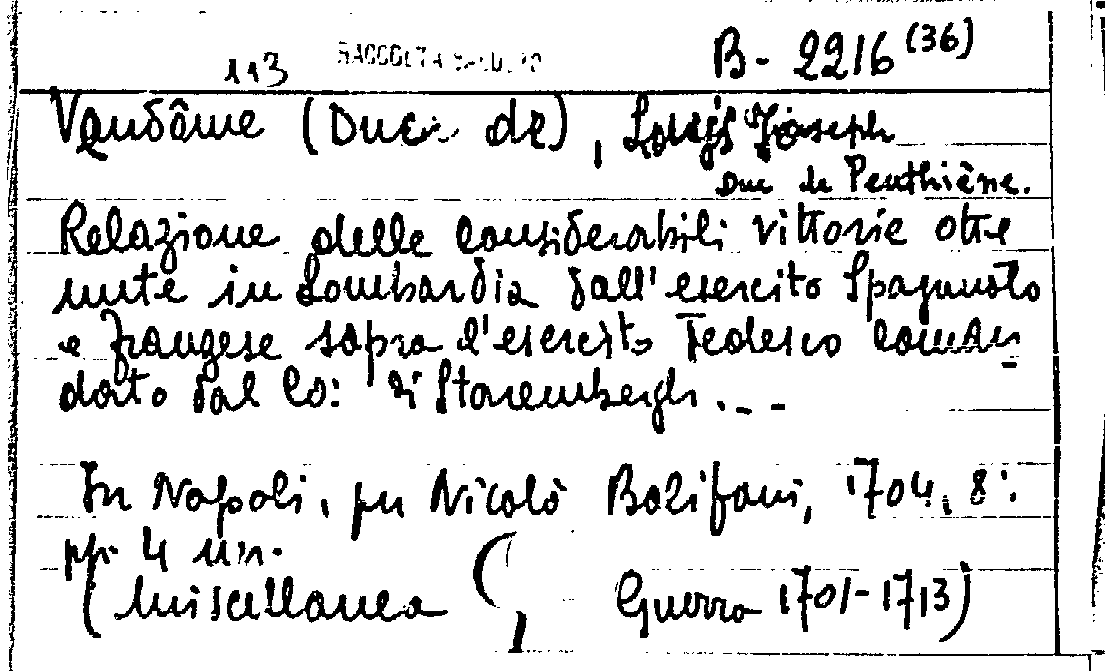 113 RACCOLTA B- 2216 (36)
Vendôme (Duc de), Louis Joseph
Duc de Penthièvre.
Relazione delle considerabili vittorie otte
nute in Lombardia dall'esercito Spagnuolo
e Franzese sopra l'esercito Tedesco coman
dato dal Co: di Starembergh. . - -
In Napoli, per Nicolò Bolifoni, 1704, 8°.
pp. 4 nn.
(Miscellanea Guerra 1701-1713)